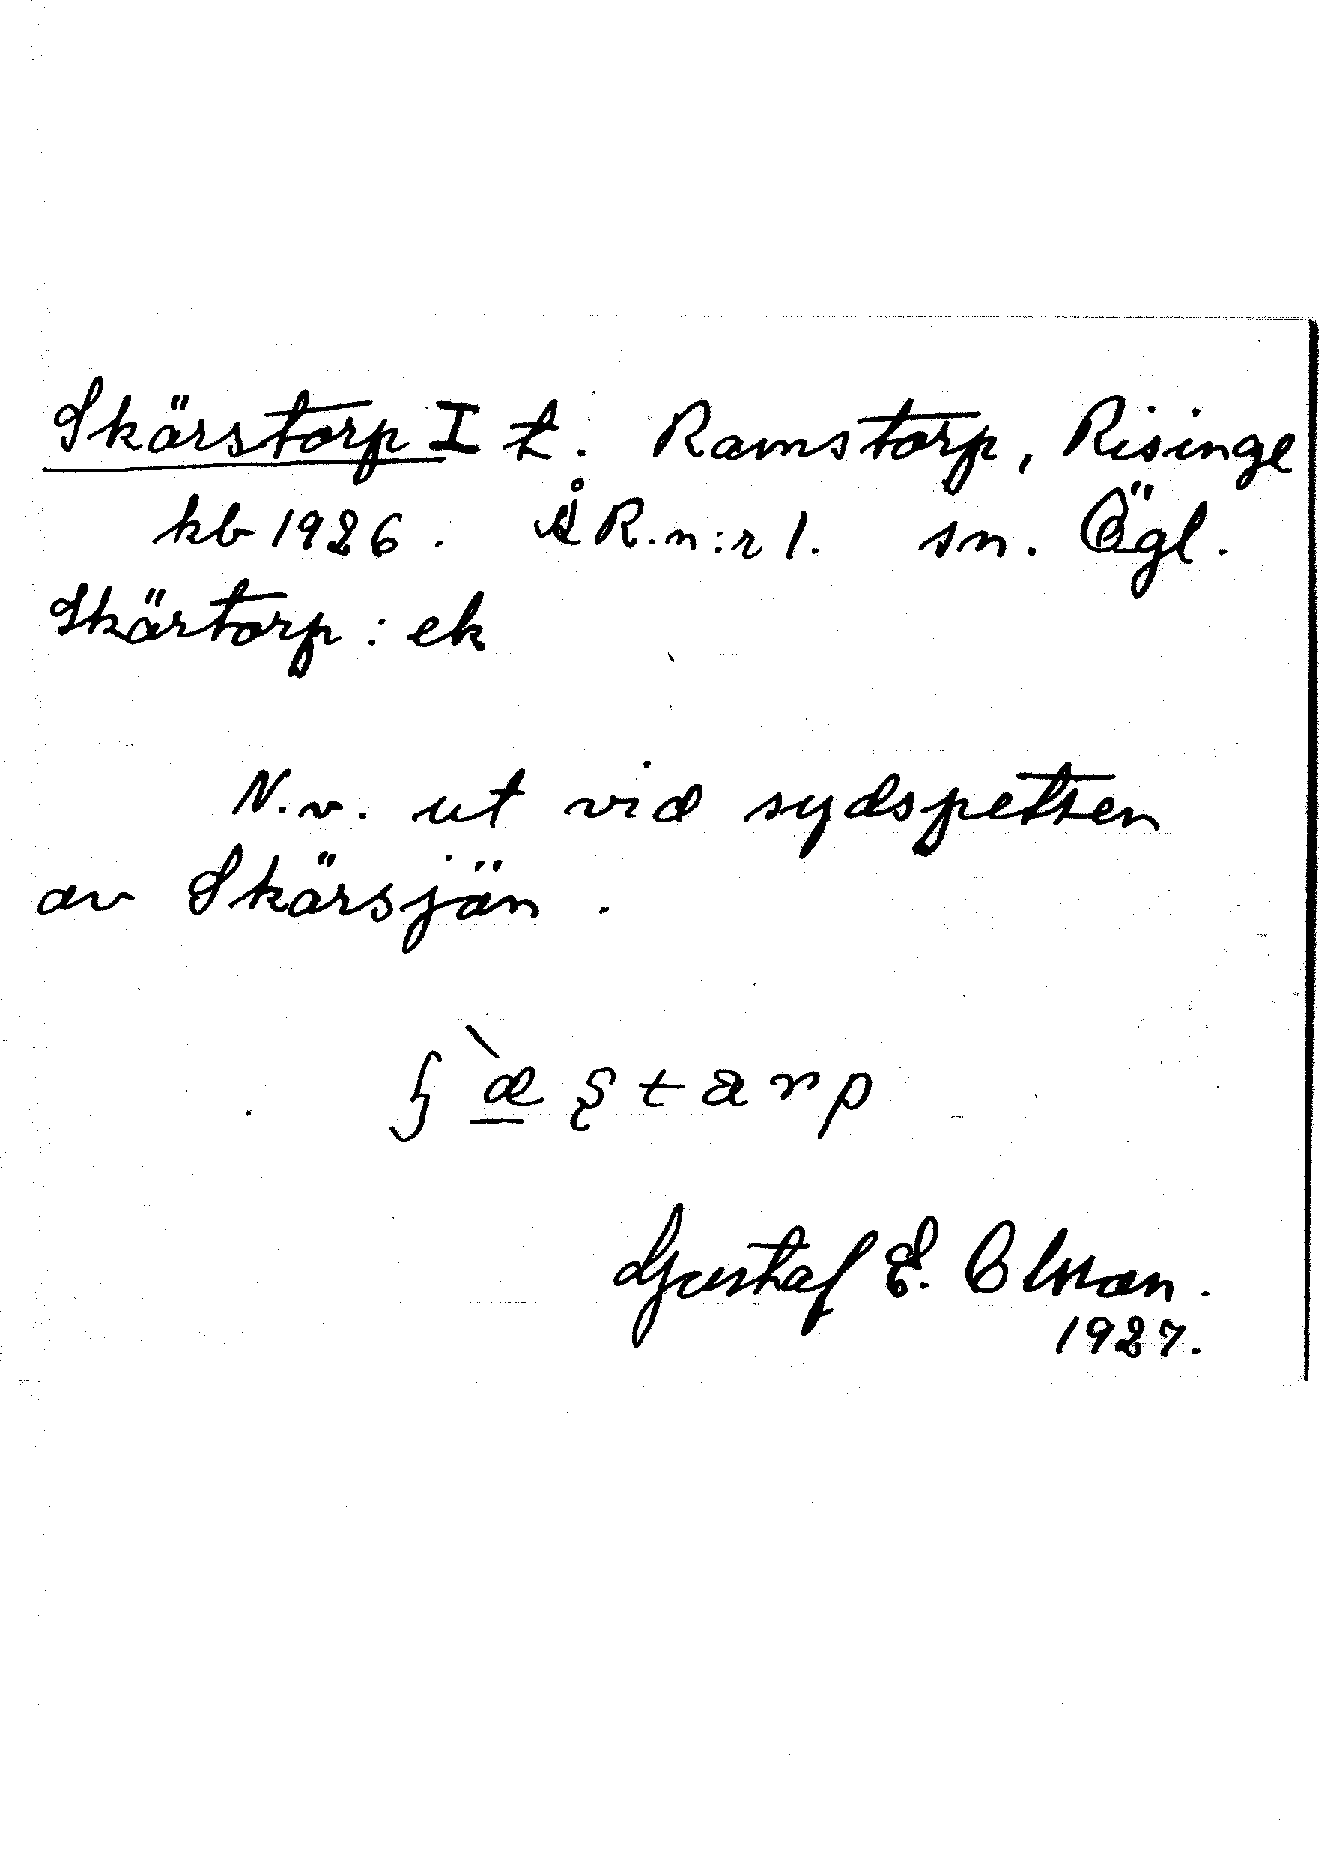 Skärstorp I t. Ramstorp, Risinge
kb 1926. ÅR.n:r 1. sn. Ögl.
Skärtorp: ek
N.v. ut vid sydspetsen
av Skärsjän.
Gustaf E. Olsson.
1927.